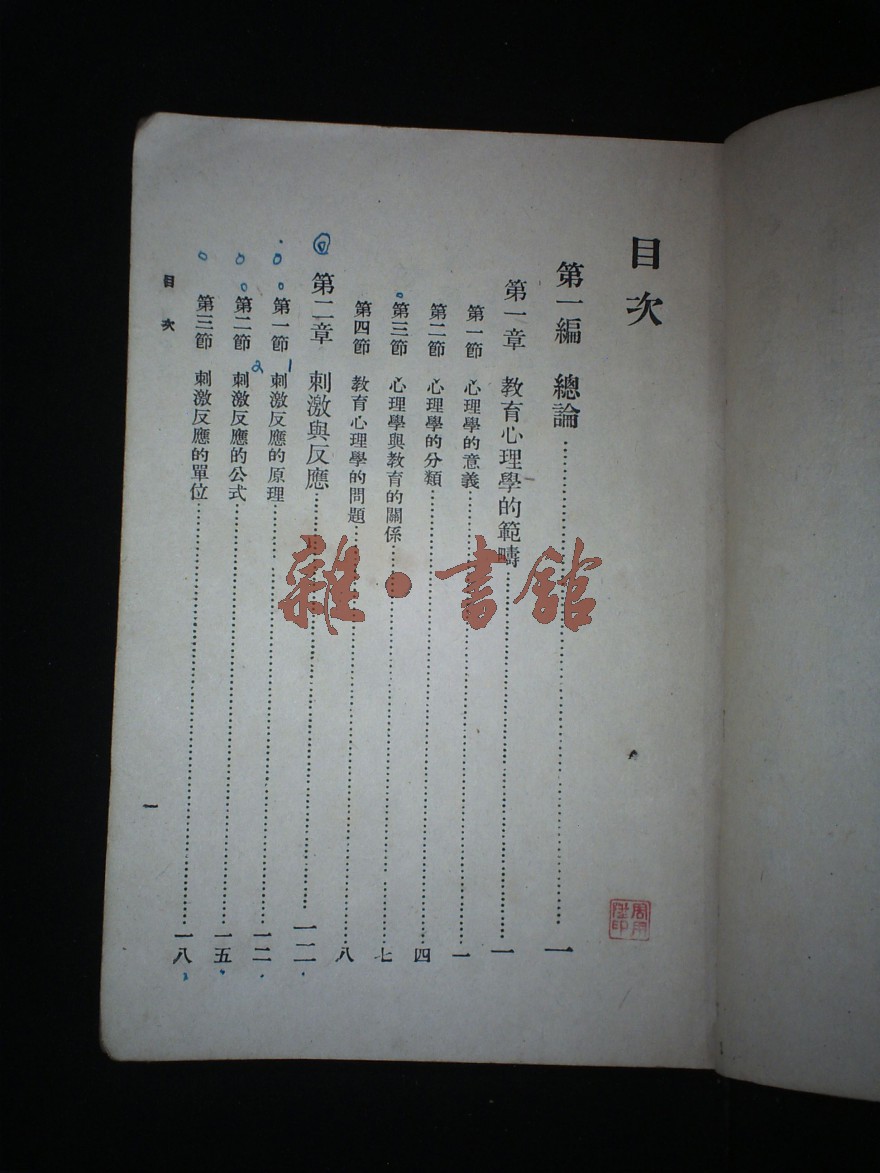 目次
第一編 總論……一
第一章 教育心理學的範疇……一
第一節 心理學的意義……一
第二節 心理學的分類……四
第三節 心理學與教育的關係……七
第四節 教育心理學的問題……八
第二章 刺激與反應……一二
第一節 刺激反應的原理……一二
第二節 刺激反應的公式……一五
第三節 刺激反應的單位……一八
目次
一
1
2
雜·書館